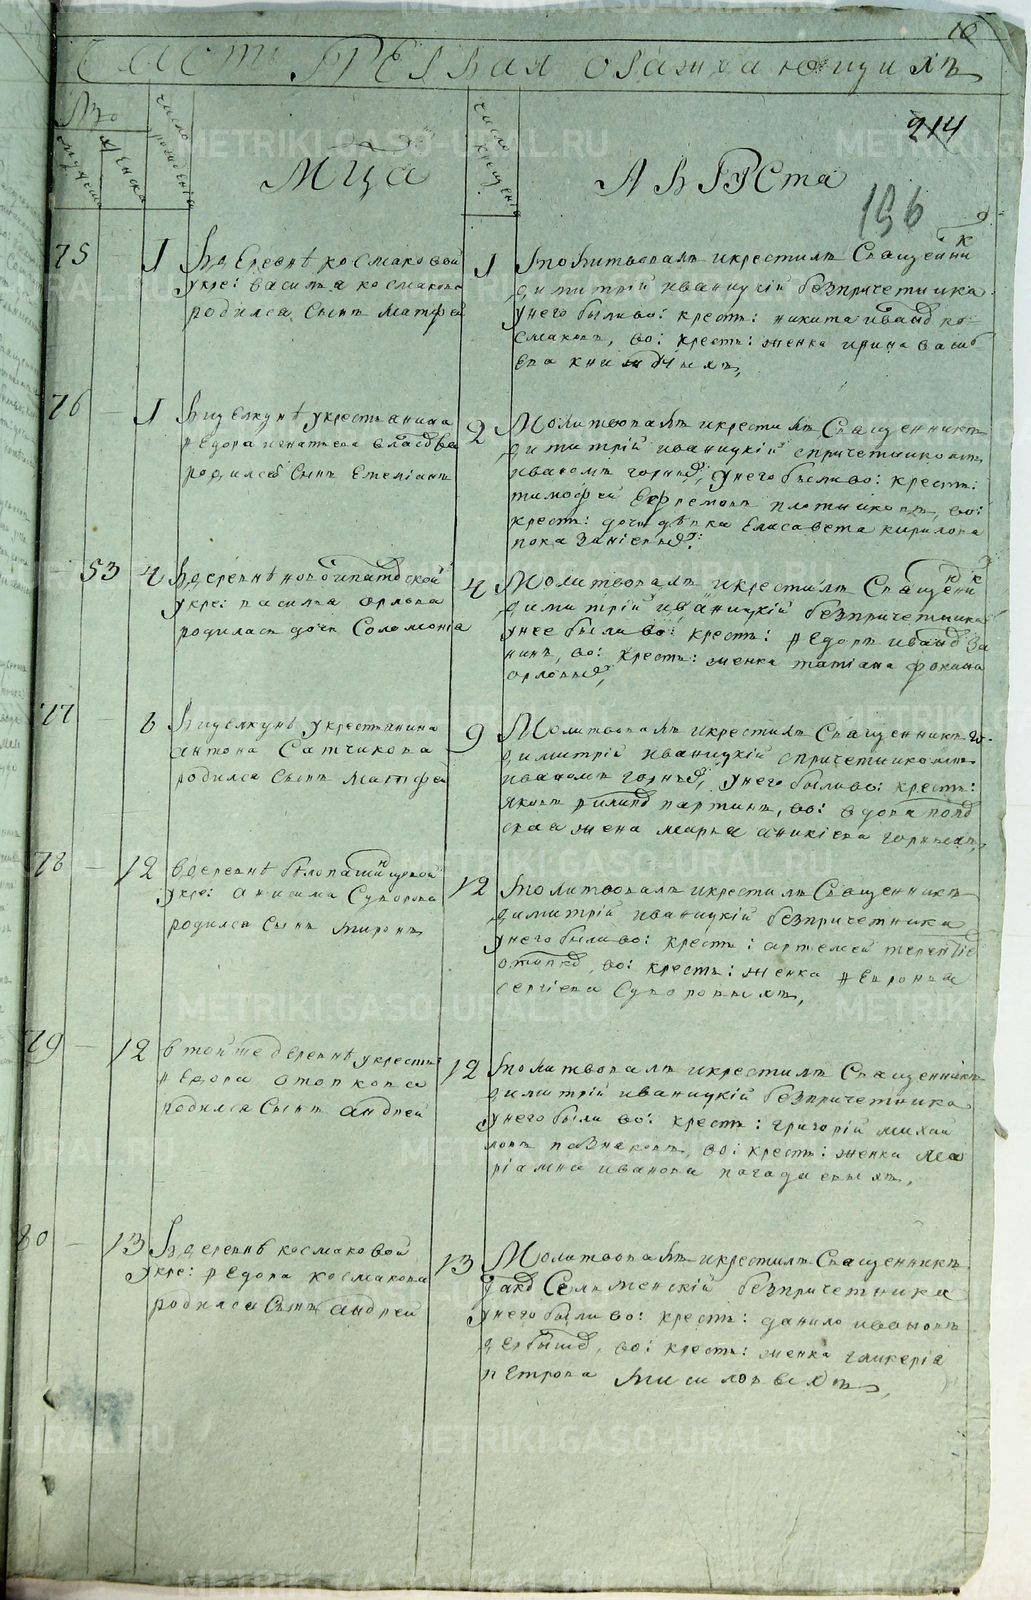 10
Часть первая о раждающихся
214
№
мужеска
женска
число рождения
Мца
число крещения
Августа
196
75 1 В деревнѣ космаковой
укре: василья космакова
родился сынъ Матфей
1 Молитвовалъ и крестилъ Священникъ
димитрій иваницкій безпричетника
унего были во: крестъ: никита иванов ко-
смаковъ, во: крестъ: женка ирина васи
ева
76 1 Вицелкунѣ укрестьянина
федора игнатьева власова
родился сынъ Емеліанъ
2 Молитвовалъ и крестилъ Священникъ
димитрій иваницкій спричетникомъ
иваномъ горных, унего были во: крестъ:
тимофей Ефремовъ плотниковъ, во:
крестъ: дочь дѣвка Елисавета кирилова
53 4 В деревнѣ новоипатовской
укре: василья орлова
родилась дочь Соломонія
4 Молитвовалъ и крестилъ Священникъ
димитрій иваницкій безпричетника
унее были во: крестъ: федоръ иванов за
нинъ, во: крестъ: женка татіана фокина
орловых,
77 6 Вицелкунѣ укрестьянина
антона Сатчикова
родился сынъ Матфей
9 Молитвовалъ и крестилъ Священникъ
димитрій иваницкій спричетникомъ
иваномъ горных, унего были во: крестъ:
яковъ филипов партинъ, во: вдова попов
ская жена марья аникіева горныхъ,
78 12 В деревнѣ
укре: анисима Суворова
родился сынъ миронъ
12 Молитвовалъ и крестилъ Священникъ
димитрій иваницкій безпричетника
унего были во: крестъ: артемей терентіе
во: крестъ: женка февронья
сергіева Суворовыхъ,
79 12 в тойже деревнѣ укрестья
федора отопкова
родился сынъ андрей
12 Молитвовалъ и крестилъ Священникъ
димитрій иваницкій безпричетника
унего были во: крестъ: григорій михай
ловъ казнаковъ, во: крестъ: женка ма
ріамна иванова
80 13 В деревнѣ космаковой
укре: федора космакова
родился сынъ андрей
13 Молитвовалъ и крестилъ Священникъ
іаков Селменскій безпричетника
унего были во: крестъ: данило ивановъ
во: крестъ: женка гликерія
петрова мисиловыхъ,
METRIKI.GASO-URAL.RU